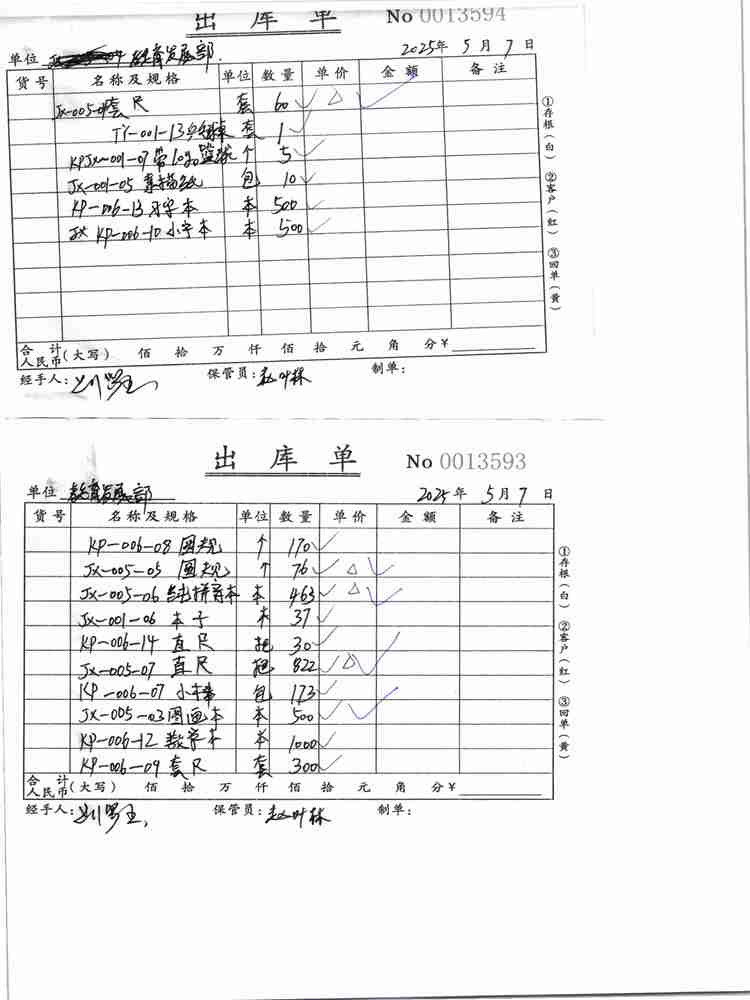 出 库 单 No 0013594
单位 教育发展部 2025年 5月 7日
货号 名称及规格 单位 数量 单价 金额 备注
Jx-005-04套尺 套 60 ✓ △ ✓
TY-001-13 套 1 ✓
KPJX-001-07带logo篮球 个 5 ✓
Jx-001-05 素描纸 包 10 ✓
KP-006-13 习字本 本 500 ✓
JX KP-006-10 小字本 本 500 ✓
合计人民币(大写) 佰 拾 万 仟 佰 拾 元 角 分¥
经手人: 保管员:赵叶林 制单:
①存根(白) ②客户(红) ③回单(黄)
出 库 单 No 0013593
单位 教育发展部 2025年 5月 7日
货号 名称及规格 单位 数量 单价 金额 备注
KP-006-08 圆规 个 170 ✓
Jx-005-05 圆规 个 76 ✓ △ ✓
Jx-005-06 拼音本 本 463 ✓ △ ✓
Jx-001-06 本子 本 37 ✓
KP-006-14 直尺 把 30 ✓
Jx-005-07 直尺 把 822 ✓ △ ✓
KP-006-07 小棒 包 173 ✓
JX-005-03图画本 本 500 ✓ ✓
KP-006-12 数学本 本 1000 ✓
KP-006-09 套尺 套 300 ✓
合计人民币(大写) 佰 拾 万 仟 佰 拾 元 角 分¥
经手人: 保管员:赵叶林 制单:
①存根(白) ②客户(红) ③回单(黄)